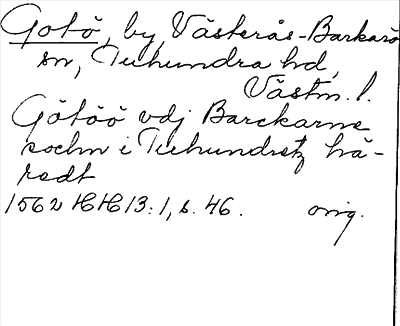 Gotö, by, Västerås-Barkarö
sn, Tuhundra hd,
Västm. l.
Götöö vdj Barckarne
sochn i Tuhundretz hä-
redt
1562 HH 13:1, s. 46. orig.